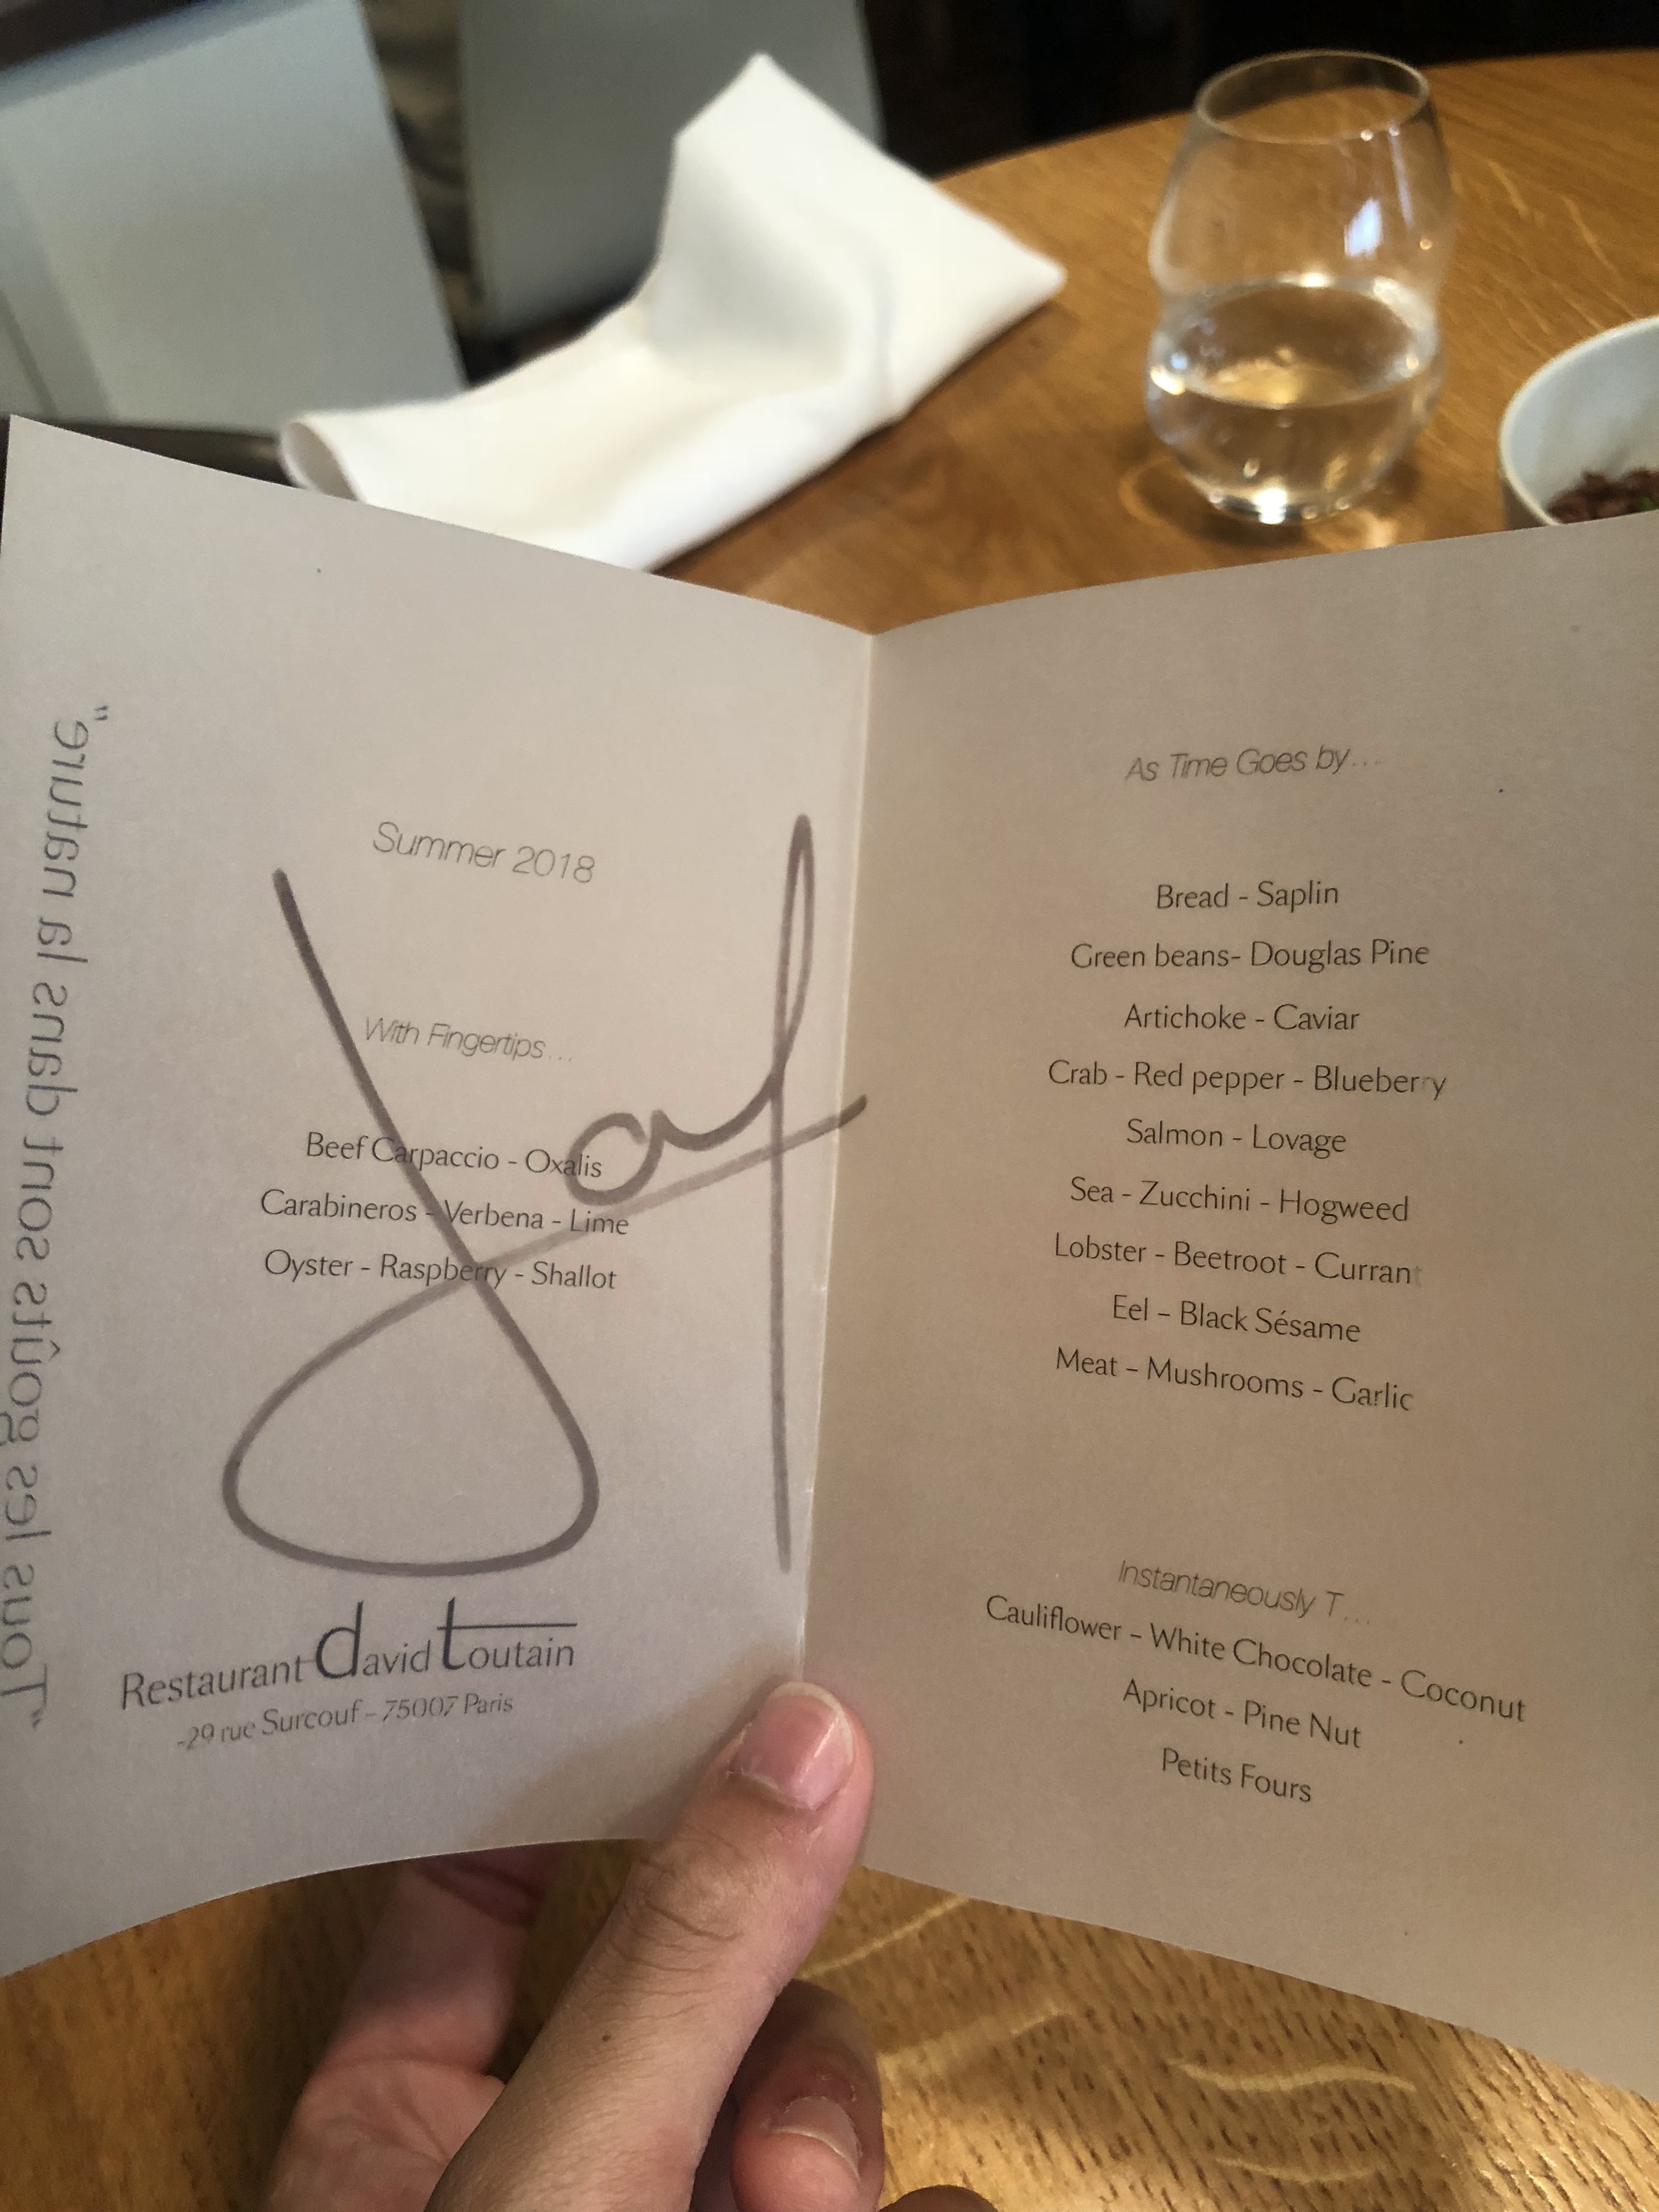 "Tous les goûts sont dans la nature"
Summer 2018
With Fingertips...
Beef Carpaccio - Oxalis
Carabineros - Verbena - Lime
Oyster - Raspberry - Shallot
Restaurant david toutain
-29 rue Surcouf - 75007 Paris
As Time Goes by...
Bread - Saplin
Green beans- Douglas Pine
Artichoke - Caviar
Crab - Red pepper - Blueberry
Salmon - Lovage
Sea - Zucchini - Hogweed
Lobster - Beetroot - Currant
Eel - Black Sésame
Meat - Mushrooms - Garlic
Instantaneously T...
Cauliflower - White Chocolate - Coconut
Apricot - Pine Nut
Petits Fours